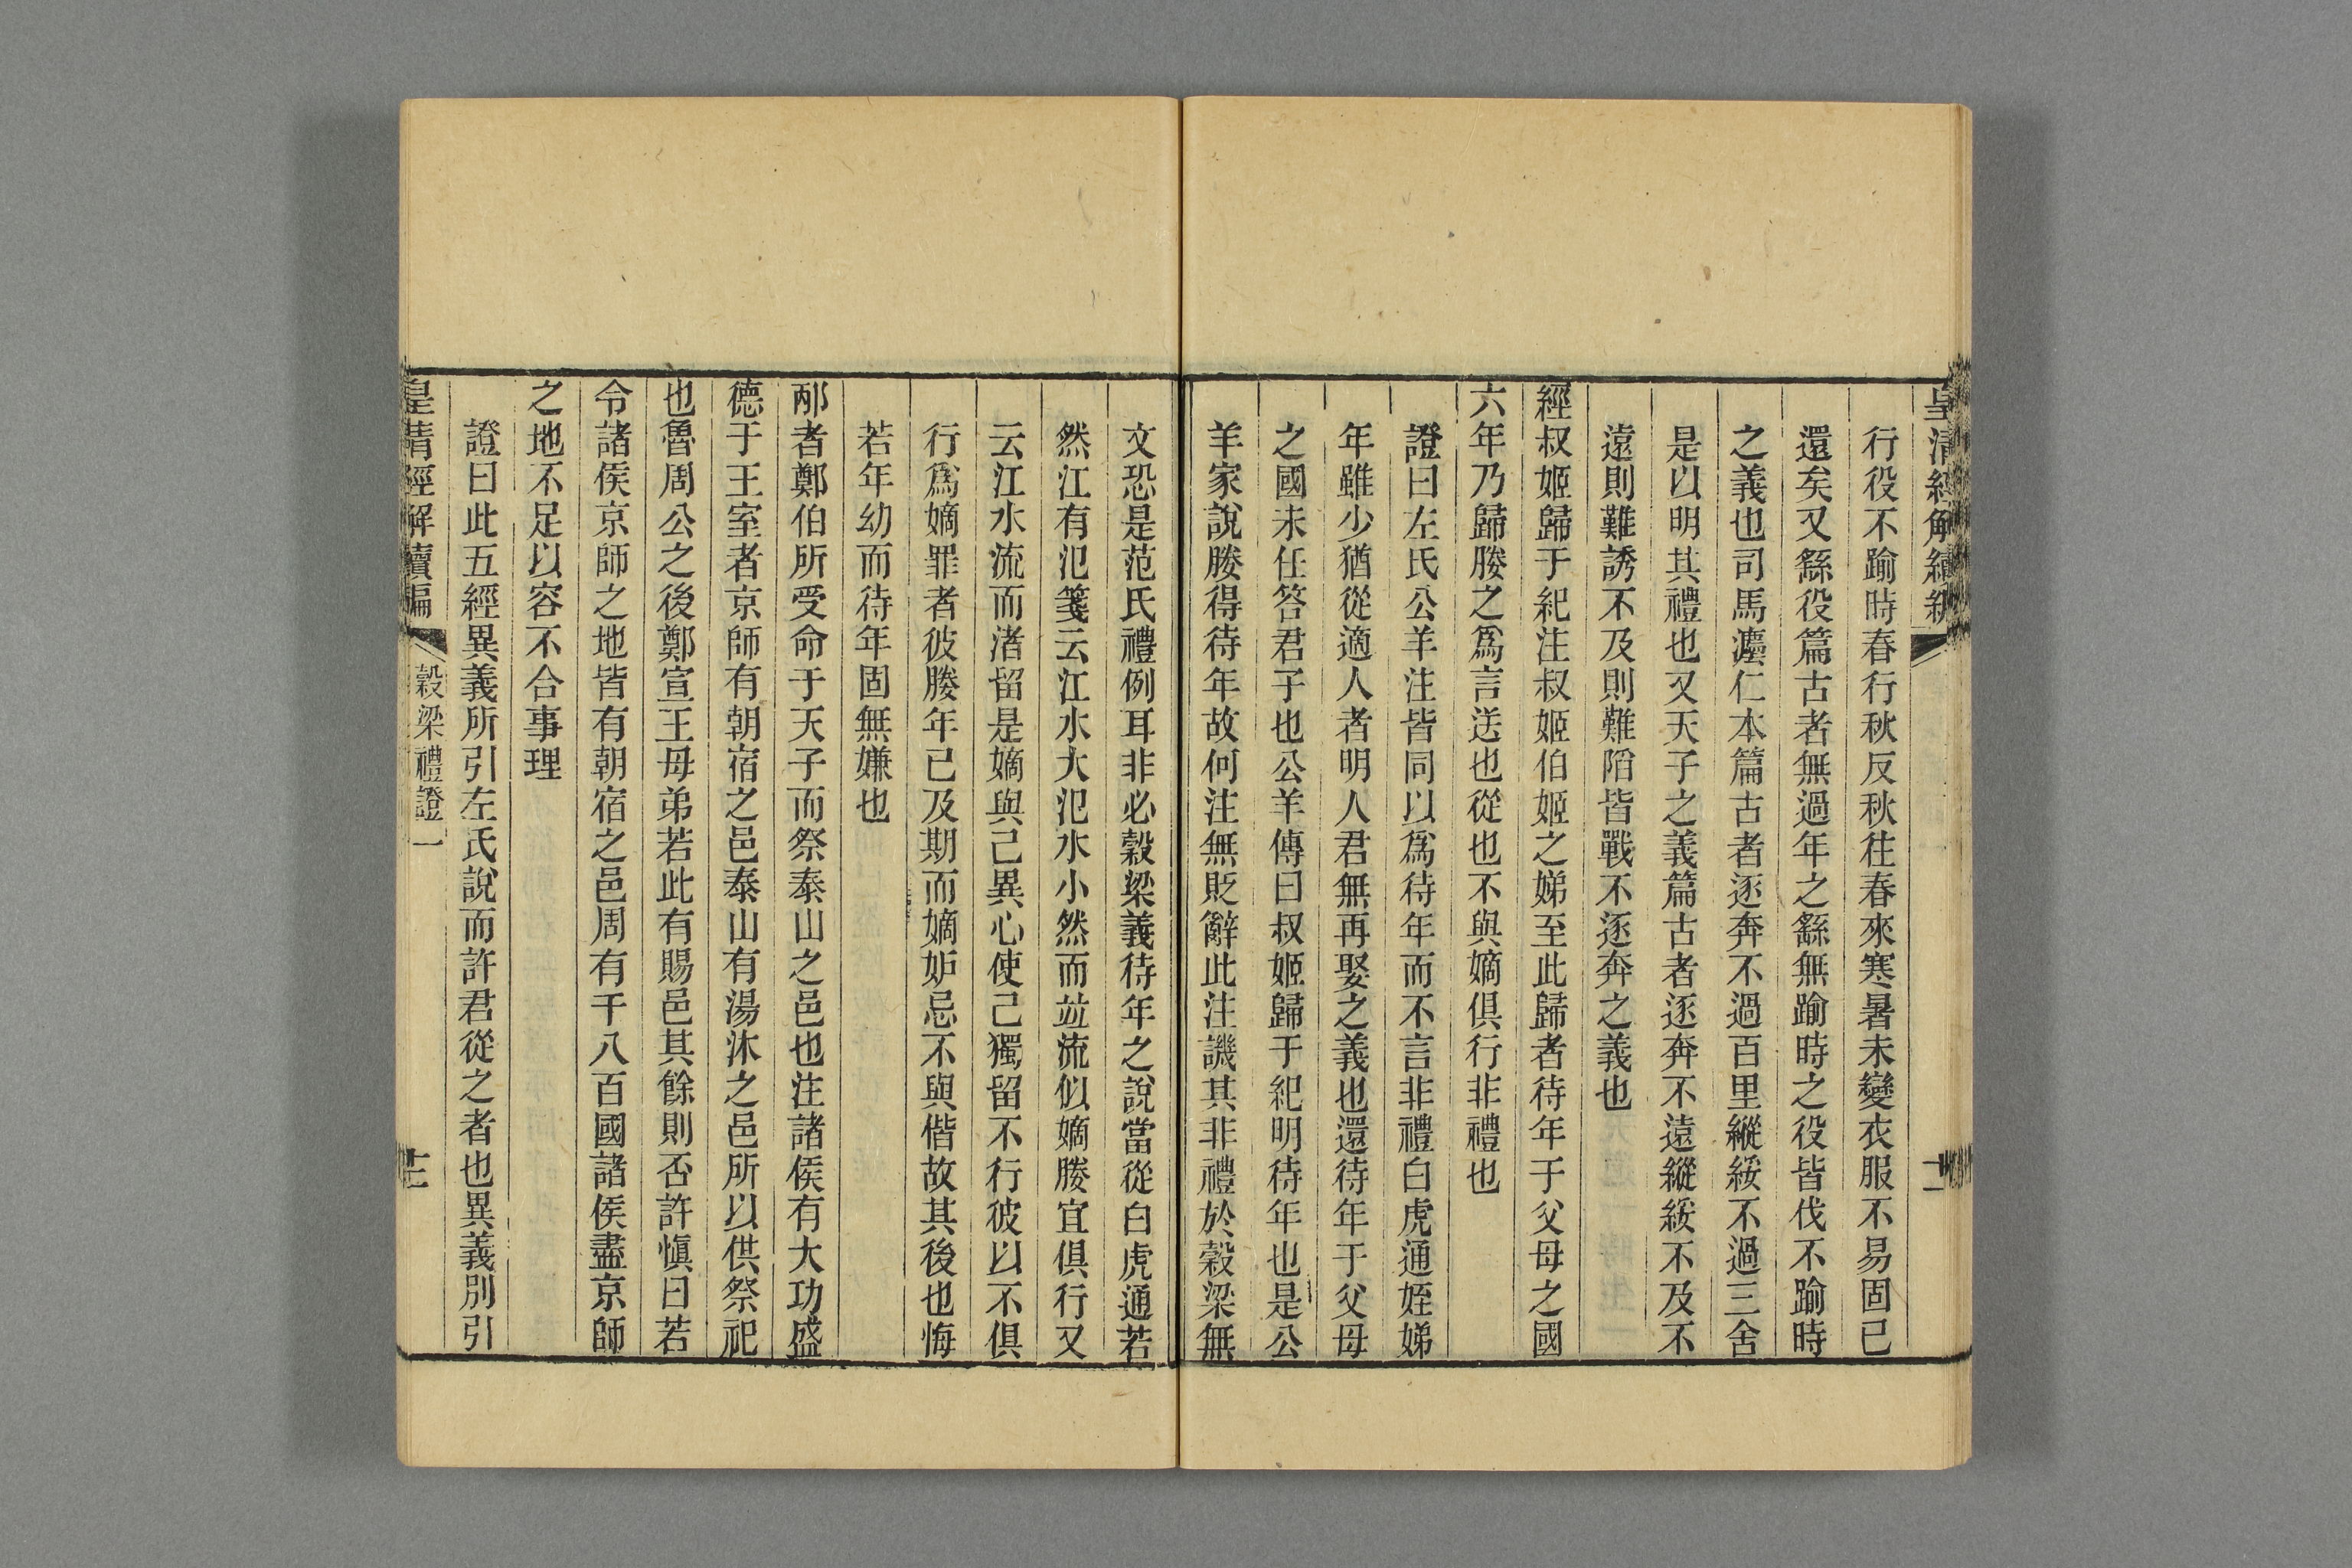 皇清經解續編
行役不踰時春行秋反秋往春來寒暑未變衣服不易固已
還矣又繇役篇古者無過年之繇無踰時之役皆伐不踰時
之義也司馬灋仁本篇古者逐奔不過百里縱綏不過三舍
是以明其禮也又天子之義篇古者逐奔不遠縱綏不及不
遠則難誘不及則難陷皆戰不逐奔之義也
經叔姬歸于紀注叔姬伯姬之娣至此歸者待年于父母之國
六年乃歸媵之爲言送也從也不與嫡俱行非禮也
證曰左氏公羊注皆同以爲待年而不言非禮白虎通姪娣
年雖少猶從適人者明人君無再娶之義也還待年于父母
之國未任答君子也公羊傳曰叔姬歸于紀明待年也是公
羊家說媵得待年故何注無貶辭此注譏其非禮於穀梁無
文恐是范氏禮例耳非必穀梁義待年之說當從白虎通若
然江有汜箋云江水大汜水小然而竝流似嫡媵宜俱行又
云江水流而渚留是嫡與己異心使己獨留不行彼以不俱
行爲嫡罪者彼媵年已及期而嫡妒忌不與偕故其後也悔
若年幼而待年固無嫌也
邴者鄭伯所受命于天子而祭泰山之邑也注諸侯有大功盛
德于王室者京師有朝宿之邑泰山有湯沐之邑所以供祭祀
也魯周公之後鄭宣王母弟若此有賜邑其餘則否許愼曰若
令諸侯京師之地皆有朝宿之邑周有千八百國諸侯盡京師
之地不足以容不合事理
證曰此五經異義所引左氏說而許君從之者也異義別引
皇清經解續編
穀梁禮證一